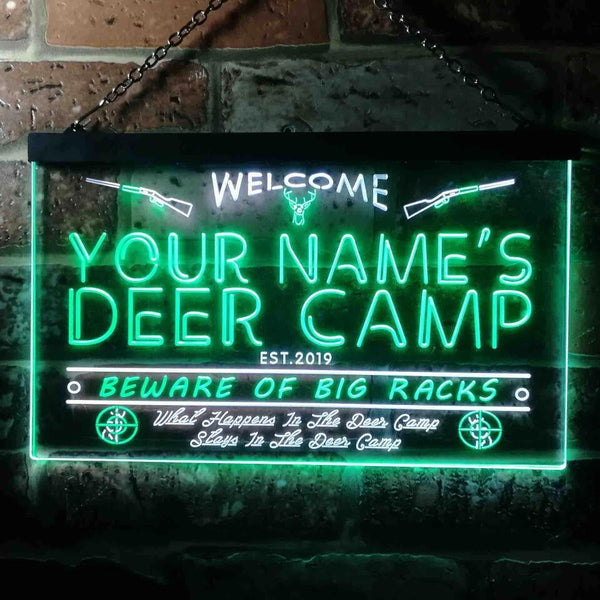 WELCOME
YOUR NAME'S
DEER CAMP
EST.2019
BEWARE OF BIG RACKS
What Happens In The Deer Camp
Stays In The Deer Camp